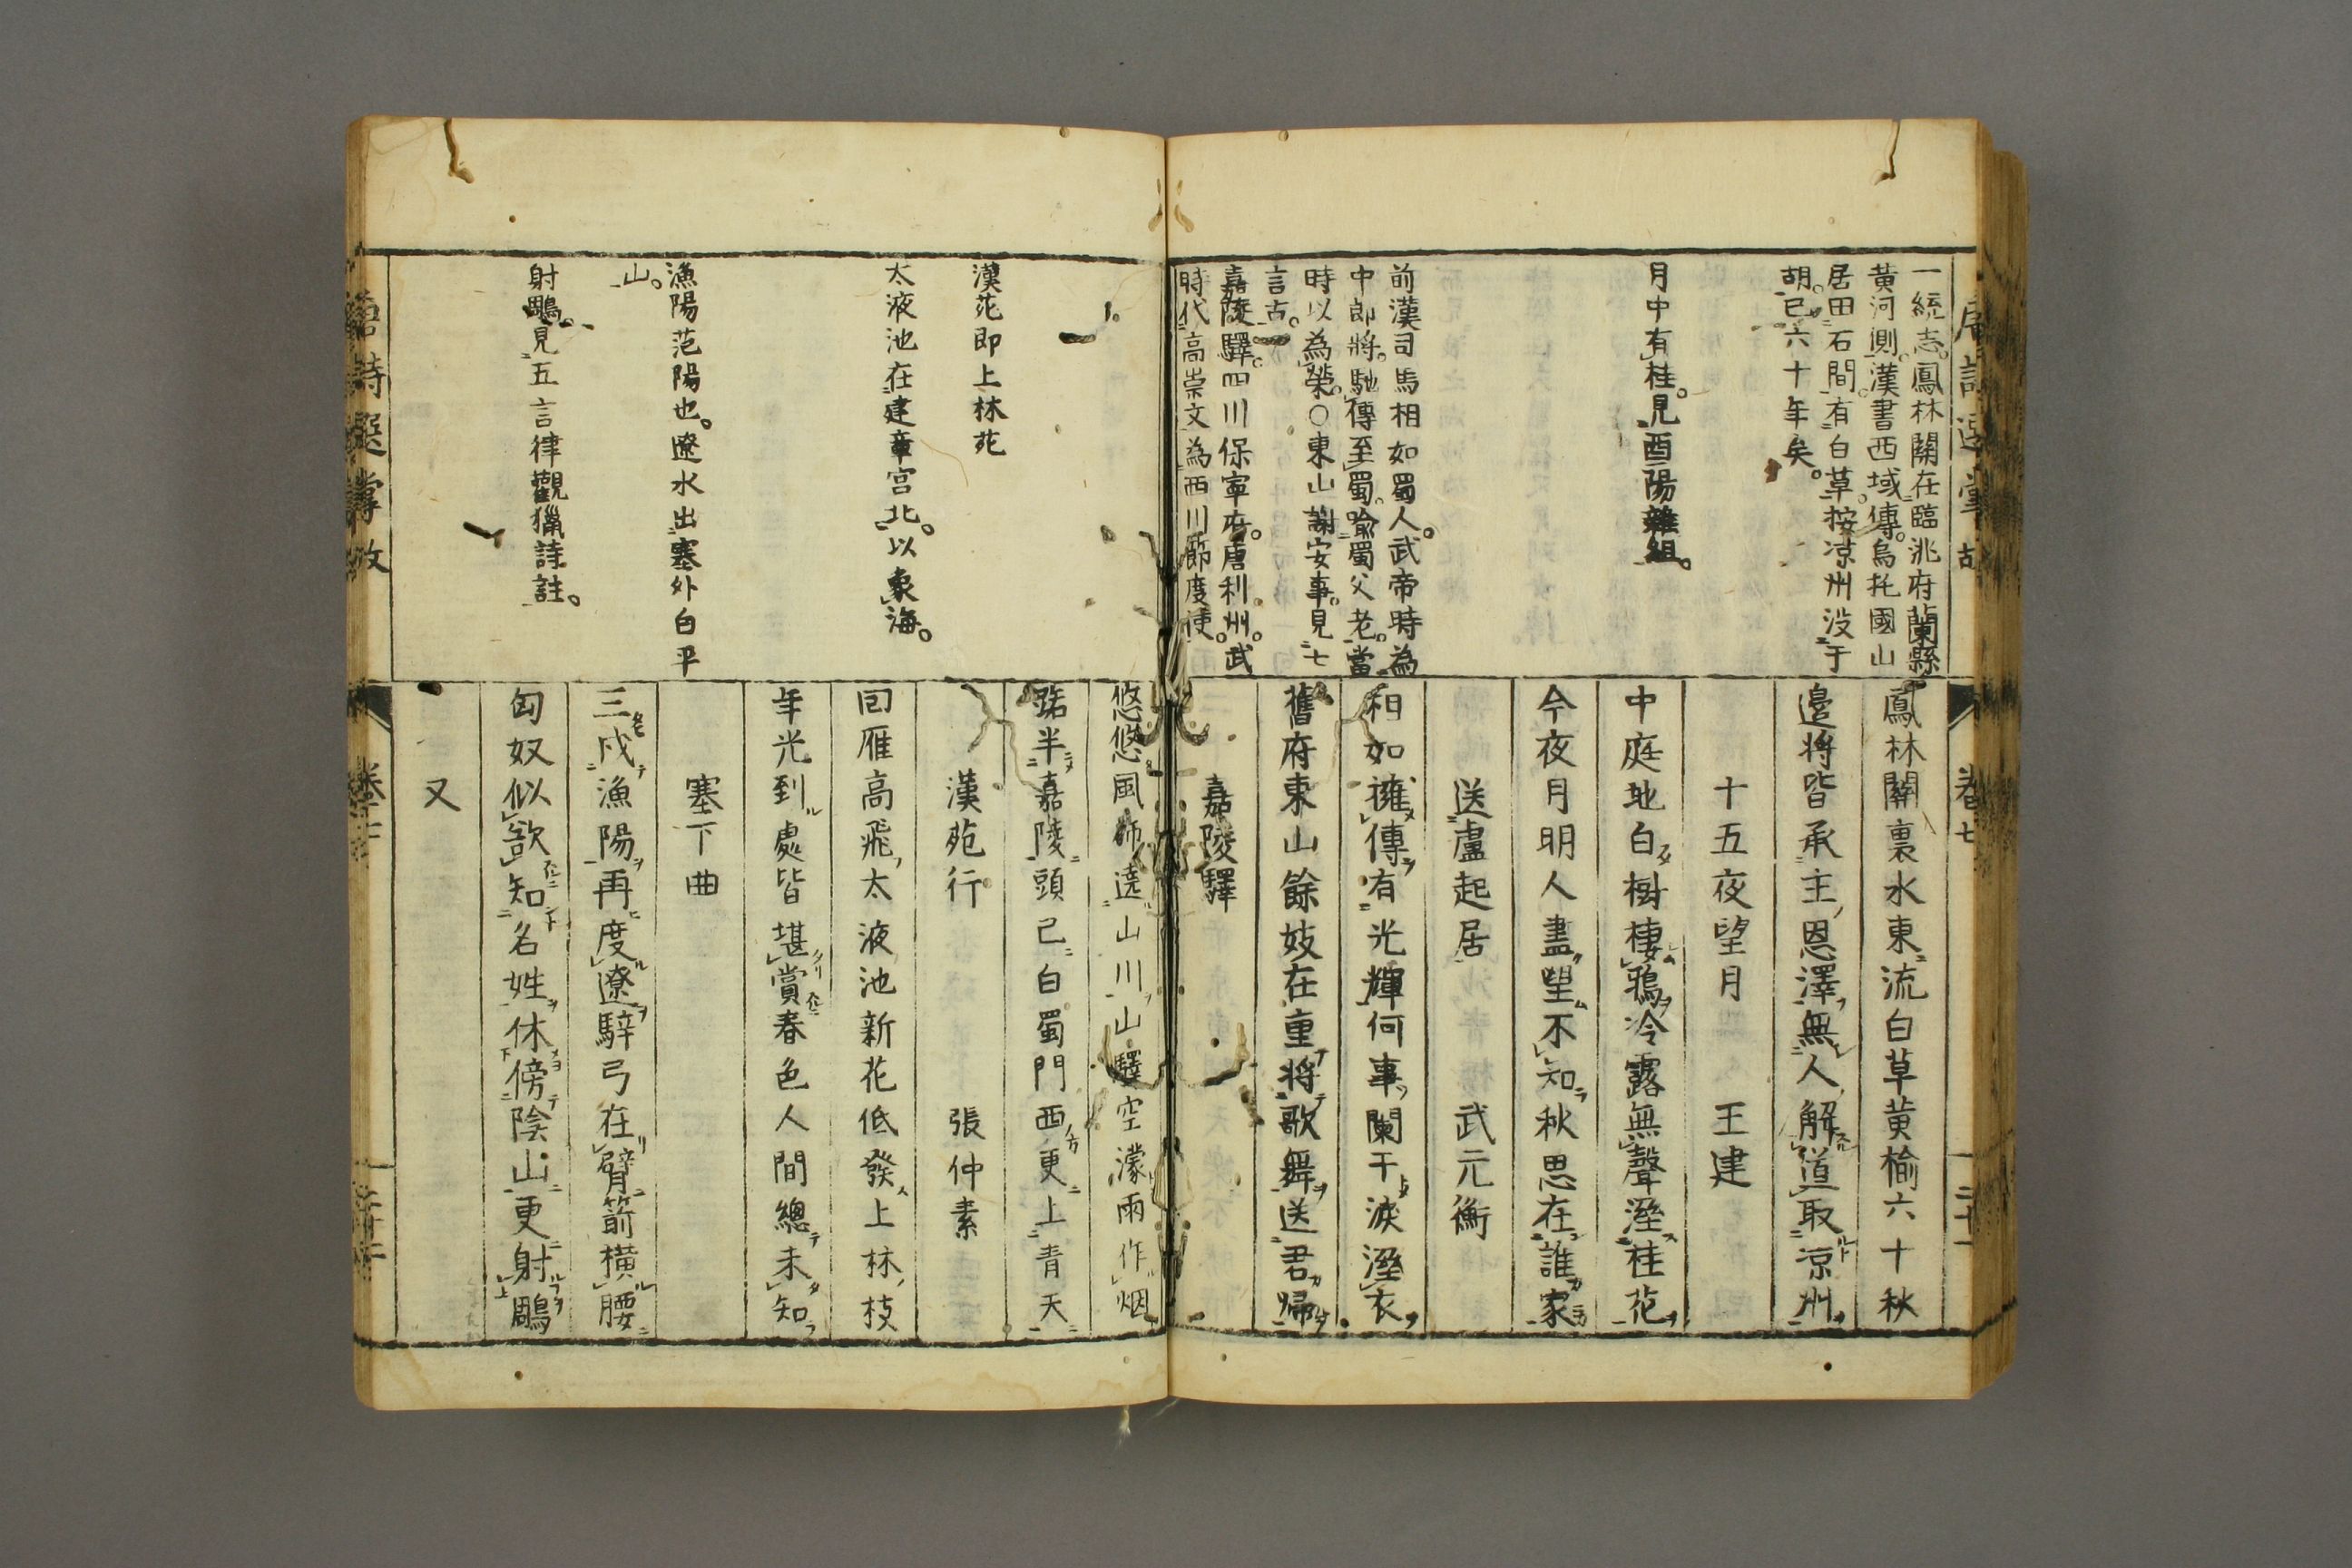 一統志。鳳林關在臨洮府蘭縣
黃河側。漢書西域傳。烏托國山
居田石間。有白草。按凉州没于
胡。已六十年矣。
月中有桂。見酉陽雜俎。
前漢司馬相如蜀人。武帝時為
中郎將。馳傳至蜀。喻蜀父老。當
時以為榮。○東山謝安事。見七
言古。
嘉陵驛。四川保寧府。唐利州。武
時代高崇文為西川節度使。
鳳林關裏水東流白草黄榆六十秋
邊將皆承主恩澤無人解道取凉州
十五夜望月 王建
中庭地白樹棲鴉冷露無聲溼桂花
今夜月明人盡望不知秋思在誰家
送盧起居 武元衡
相如擁傳有光輝何事闌干淚溼衣
舊府東山餘妓在重將歌舞送君歸
嘉陵驛
卷七
漢苑即上林苑
太液池在建章宮北。以象海。
漁陽范陽也。遼水出塞外白平
山。
射鵰。見五言律觀獵詩註。
悠悠風斾遶山川山驛空濛雨作烟
路半嘉陵頭已白蜀門西更上青天
漢苑行 張仲素
回雁高飛太液池新花低發上林枝
年光到處皆堪賞春色人間總未知
塞下曲
三戍漁陽再度遼騂弓在臂箭横腰
匈奴似欲知名姓休傍陰山更射鵰
又